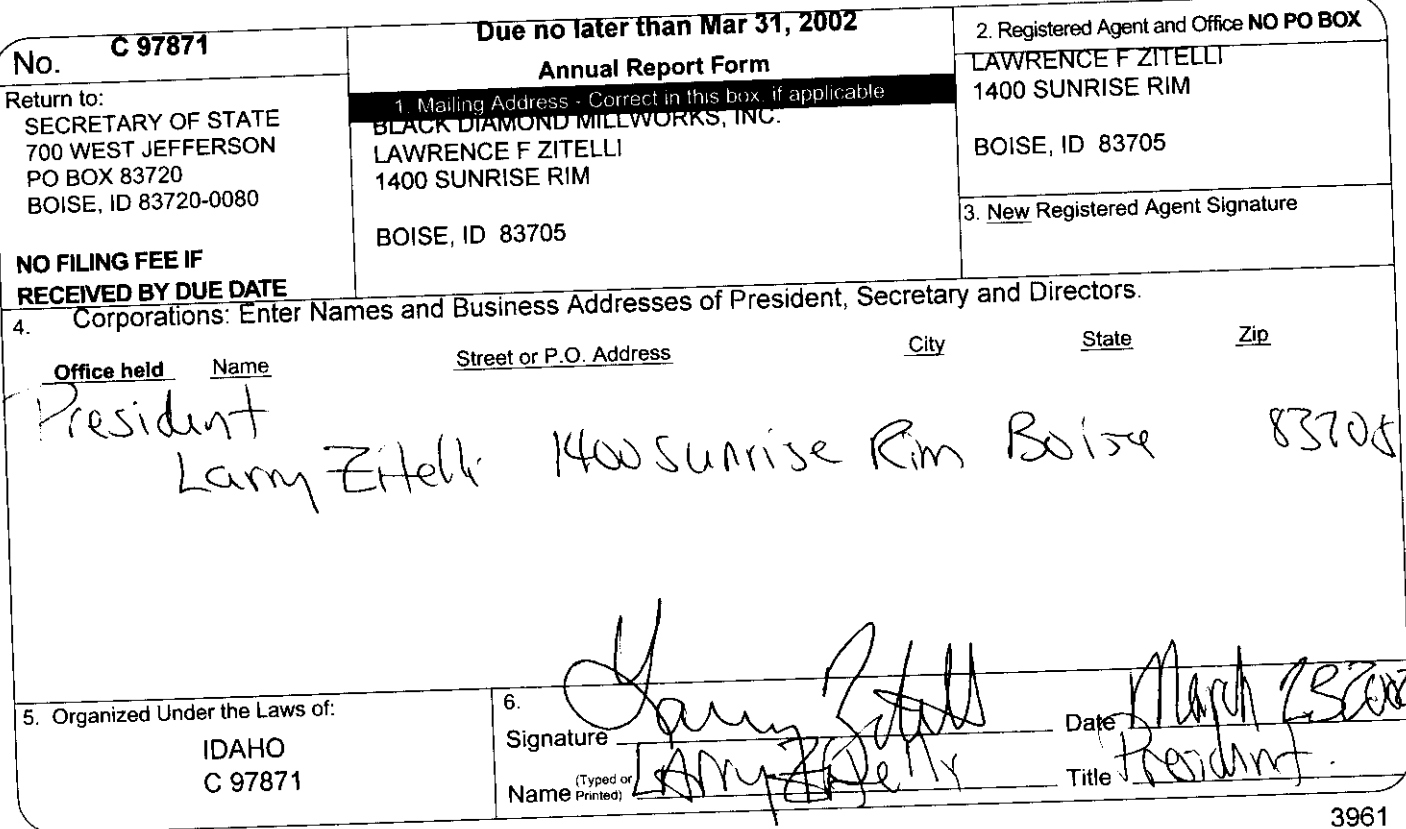 No. C 97871
Return to:
SECRETARY OF STATE
700 WEST JEFFERSON
PO BOX 83720
BOISE, ID 83720-0080
NO FILING FEE IF
RECEIVED BY DUE DATE
Due no later than Mar 31, 2002
Annual Report Form
1. Mailing Address - Correct in this box, if applicable
BLACK DIAMOND MILLWORKS, INC.
LAWRENCE F ZITELLI
1400 SUNRISE RIM
BOISE, ID 83705
2. Registered Agent and Office NO PO BOX
LAWRENCE F ZITELLI
1400 SUNRISE RIM
BOISE, ID 83705
3. New Registered Agent Signature
4. Corporations: Enter Names and Business Addresses of President, Secretary and Directors.
Office held Name Street or P.O. Address City State Zip
President
Larry Zitelli 1400 Sunrise Rim Boise 83705
5. Organized Under the Laws of:
IDAHO
C 97871
6.
Signature Larry Zitelli Date March 25 2002
Name (Typed or Printed) Larry Zitelli Title President.
3961